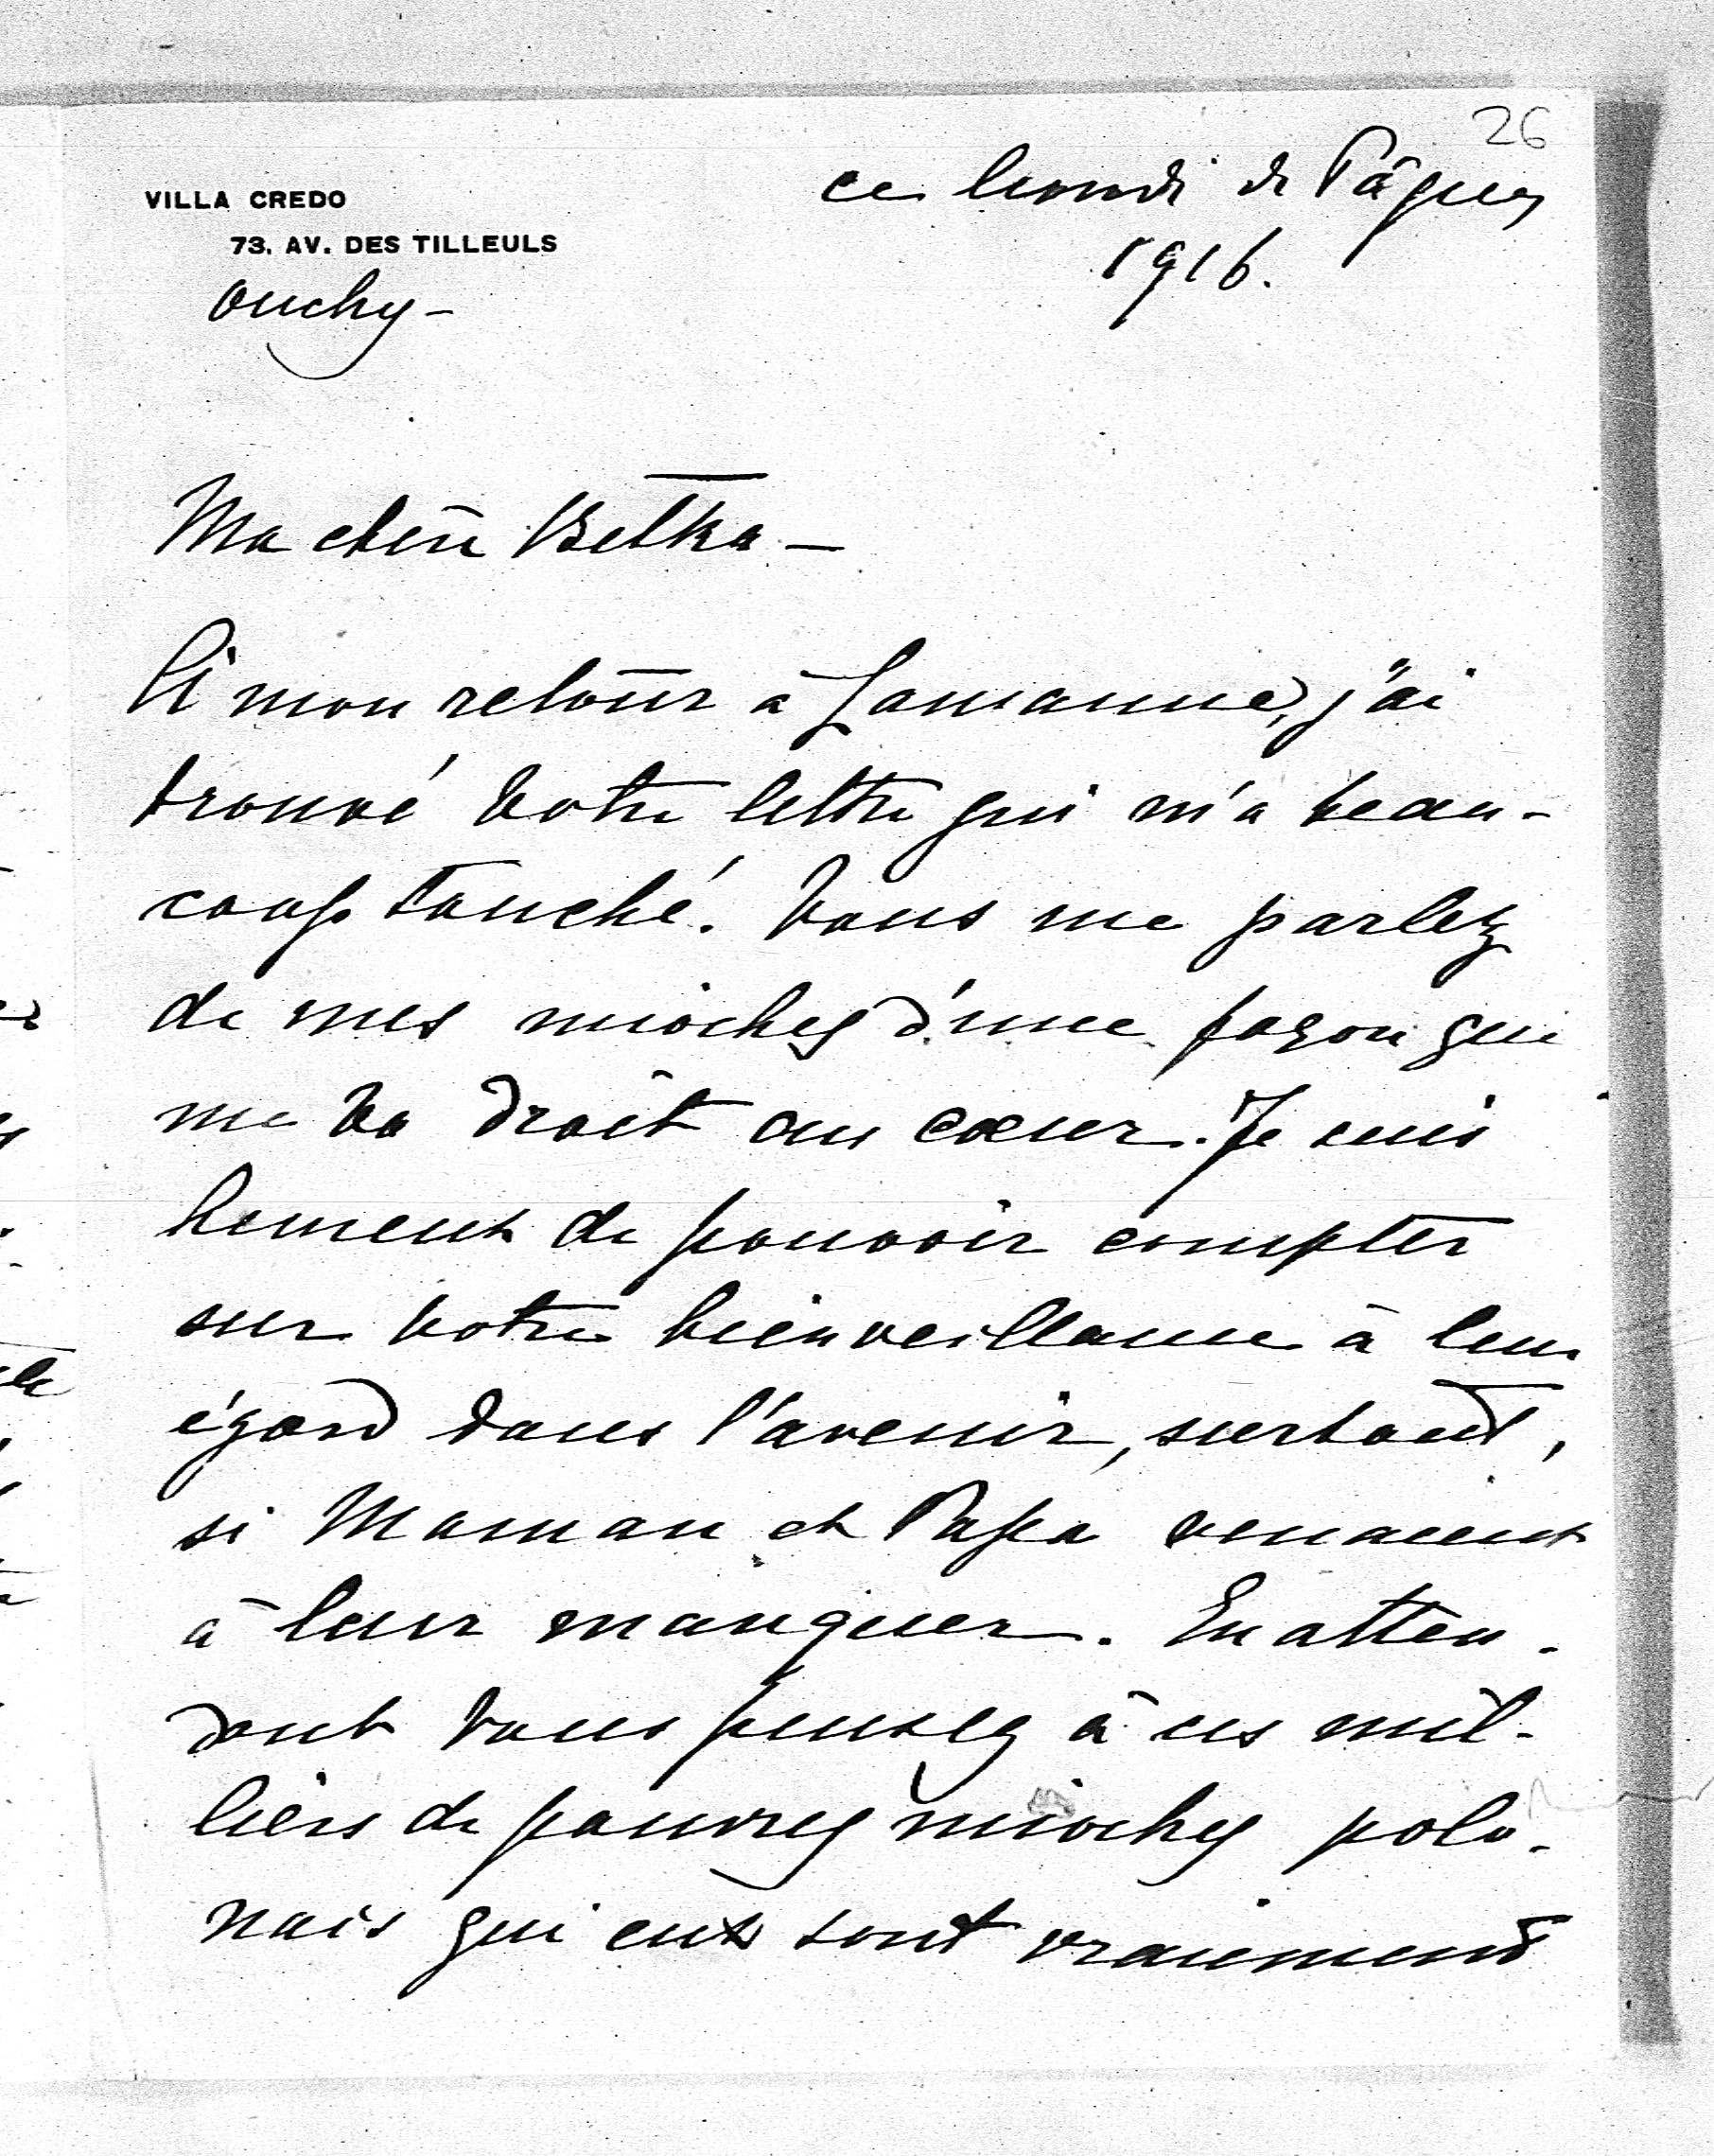 26
ce lundi de Pâques
1916.
VILLA CREDO
73. AV. DES TILLEULS
Ouchy -
Ma chère Betka -
A mon retour à Lausanne, j'ai
trouvé votre lettre qui m'a beau-
coup touché. Vous me parlez
de mes mioches d'une façon qui
me va droit au cœur. Je suis
heureux de pouvoir compter
sur votre bienveillance à leur
égard dans l'avenir, surtout,
si Maman et Papa venaient
à leur manquer. En atten-
dant vous pensez à ces mil-
liers de pauvres mioches polo-
nais qui eux sont vraiment